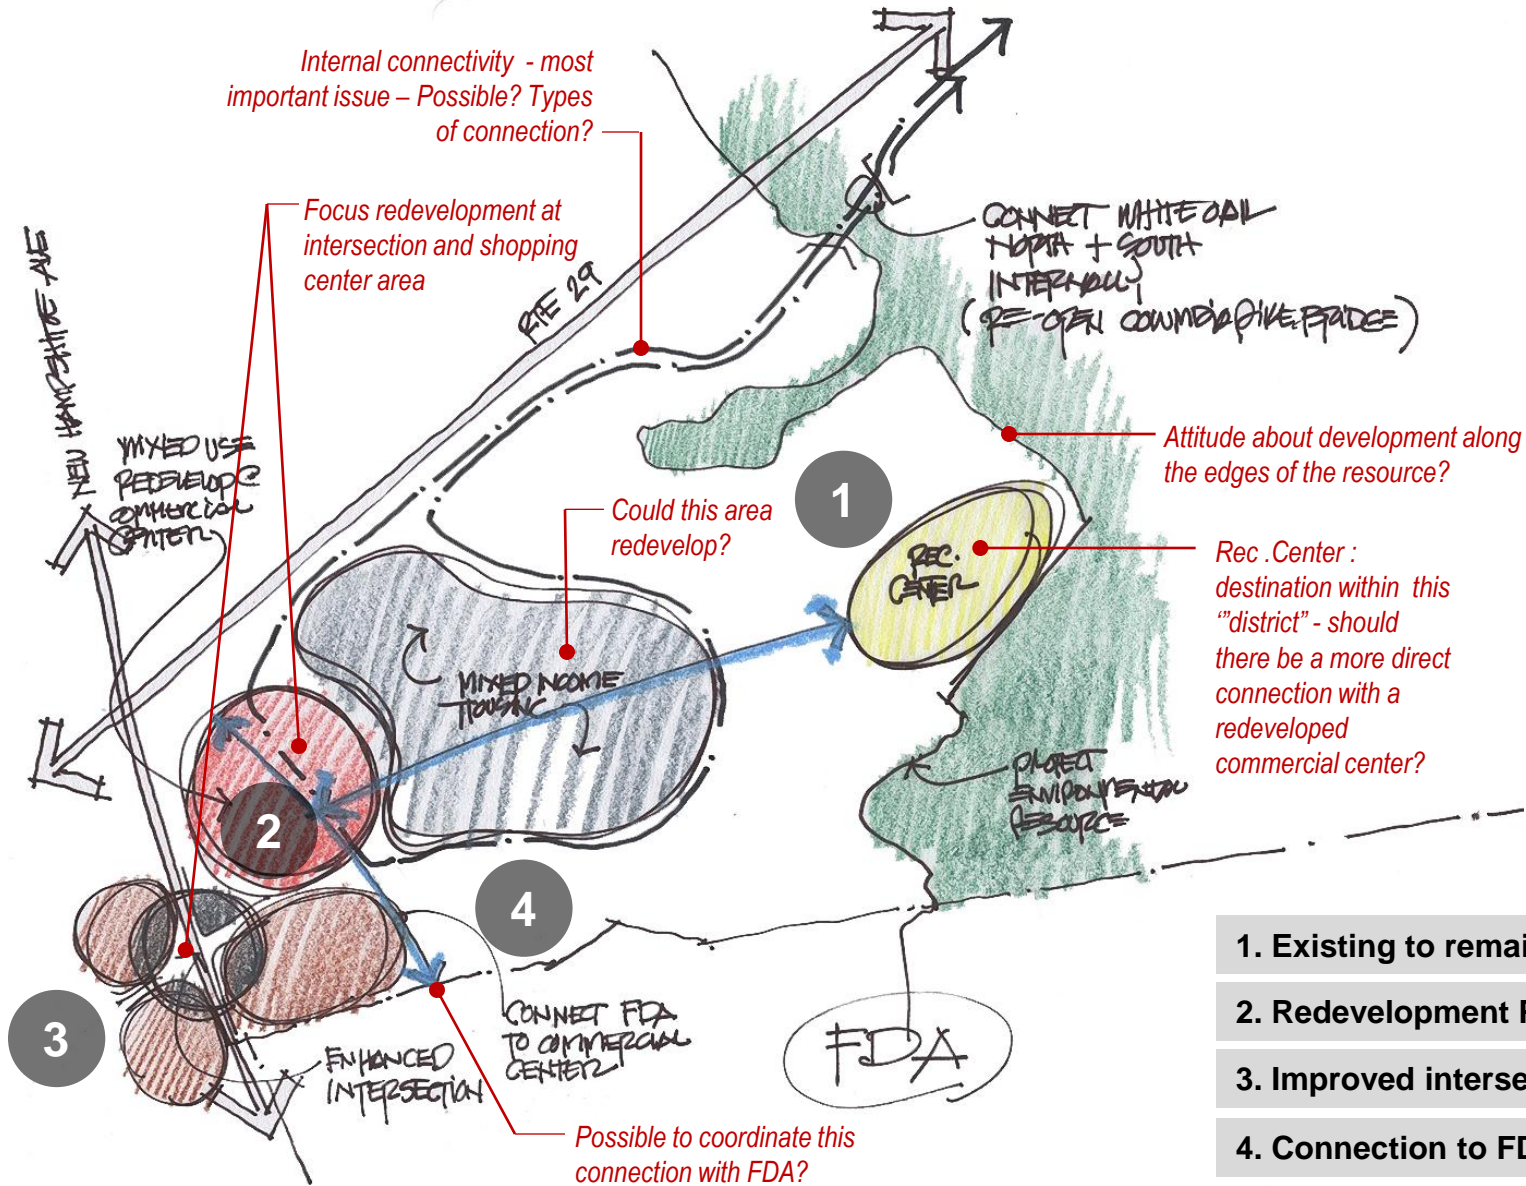 Internal connectivity - most
important issue – Possible? Types
of connection?
Focus redevelopment at
intersection and shopping
center area
NEW HAMPSHIRE AVE
RTE 29
CONNECT WHITE OAK
NORTH + SOUTH
INTERNALLY
(RE-OPEN COLUMBIA PIKE BRIDGE)
MIXED USE
REDEVELOP
COMMERCIAL
CENTER
Attitude about development along
the edges of the resource?
Could this area
redevelop?
1
REC.
CENTER
Rec .Center :
destination within this
‘”district” - should
there be a more direct
connection with a
redeveloped
commercial center?
MIXED INCOME
HOUSING
PROTECT
ENVIRONMENTAL
RESOURCE
2
4
3
CONNECT FDA
TO COMMERCIAL
CENTER
ENHANCED
INTERSECTION
FDA
Possible to coordinate this
connection with FDA?
1. Existing to remai
2. Redevelopment
3. Improved interse
4. Connection to FD